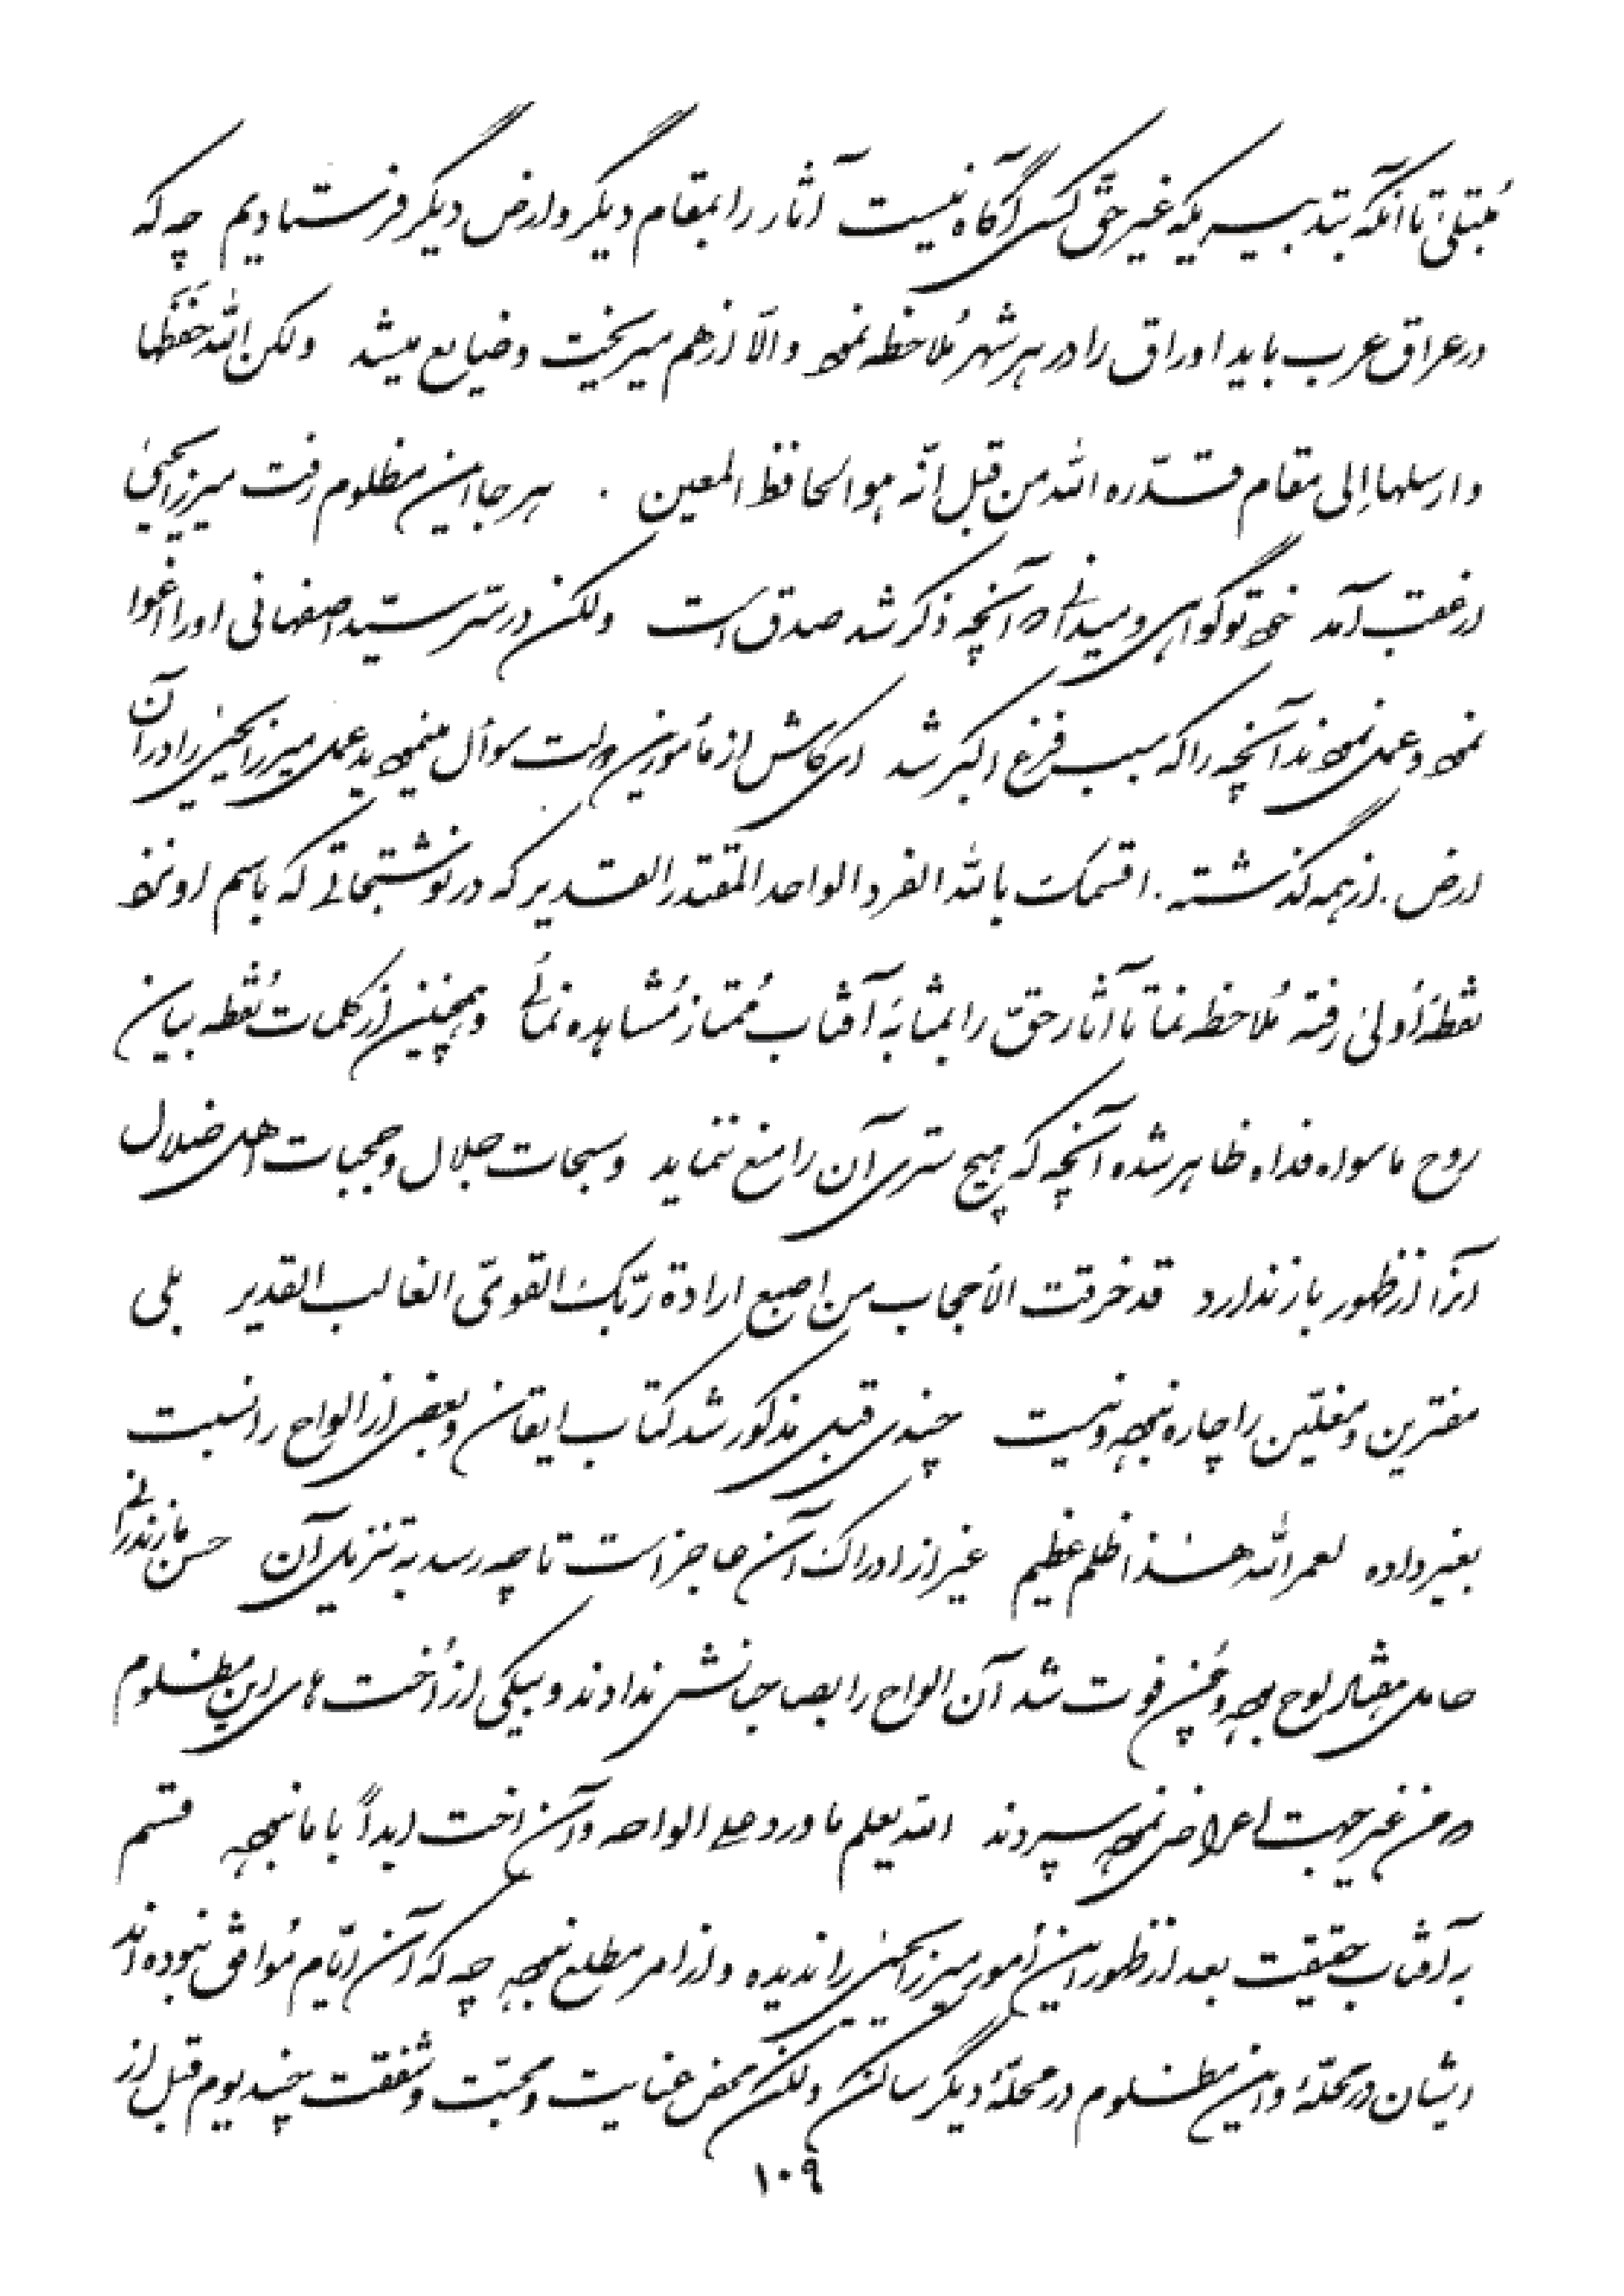 مُبتلیٰ تا آنکه بتدبیریکه غیر حقّ کسی آگاه نیست آثار را بمقام دیگر و ارض دیگر فرستادیم چه که
در عراق عرب باید اوراق را در هر شهر مُلاحظه نمود والّا از هم میریخت و ضایع میشد ولکن اللّه حَفَظَها
وارسلها اِلی مقام قدّره اللّه من قبل انّه هو الحافظ المعین . هر جا این مظلوم رفت میرزا یحییٰ
از عقب آمد خود تو گواهی و میدانی که آنچه ذکر شد صدق است ولکن در سرّ سیّد اصفهانی او را اغوا
نمود و عمل نمودند آنچه را که سبب فزع اکبر شد ای کاش از مأمورین دولت سوأل مینمودید عمل میرزا یحییٰ را در آن
ارض . از همه گذشته . اقسمک باللّه الفرد الواحد المقتدر القدیر که در نوشتجاتی که باسم او نزد
نقطهٔ اُولیٰ رفته مُلاحظه نما تا آثار حقّ را بمثابهٔ آفتاب مُمتاز مُشاهده نمائی و همچنین از کلمات نُقطه بیان
روح ماسواه فداه ظاهر شده آنچه که هیچ ستری آن را منع ننماید و سبحات جلال و حجبات اهل ضلال
آنرا از ظهور باز ندارد قد خرقت الأحجاب من اصبع ارادة ربّک القویّ الغالب القدیر بلی
مفترین و مغلّین را چاره نبوده و نیست چندی قبل مذکور شد کتاب ایقان و بعضی از الواح را نسبت
بغیر داده لعمر اللّه هذا ظلم عظیم غیر از ادراک آن عاجز است تا چه رسد به تنزیل آن حسن مازندرانی
حامل هفتاد لوح بوده و چون فوت شد آن الواح را بصاحبانش ندادند و بیکی از اُخت های این مظلوم
که من غیر جهت اعراض نموده سپردند اللّه یعلم ما ورد علی الواحه و آن اخت ابداً با ما نبوده قسم
به آفتاب حقیقت بعد از ظهور این اُمور میرزا یحییٰ را ندیده و از امر مطلع نبوده چه که آن ایّام مُوافق نبوده اند
ایشان در محلّهٔ و این مظلوم در محلّهٔ دیگر ساکن ولکن محض عنایت و محبّت و شفقت چند یوم قبل از
۱۰۹